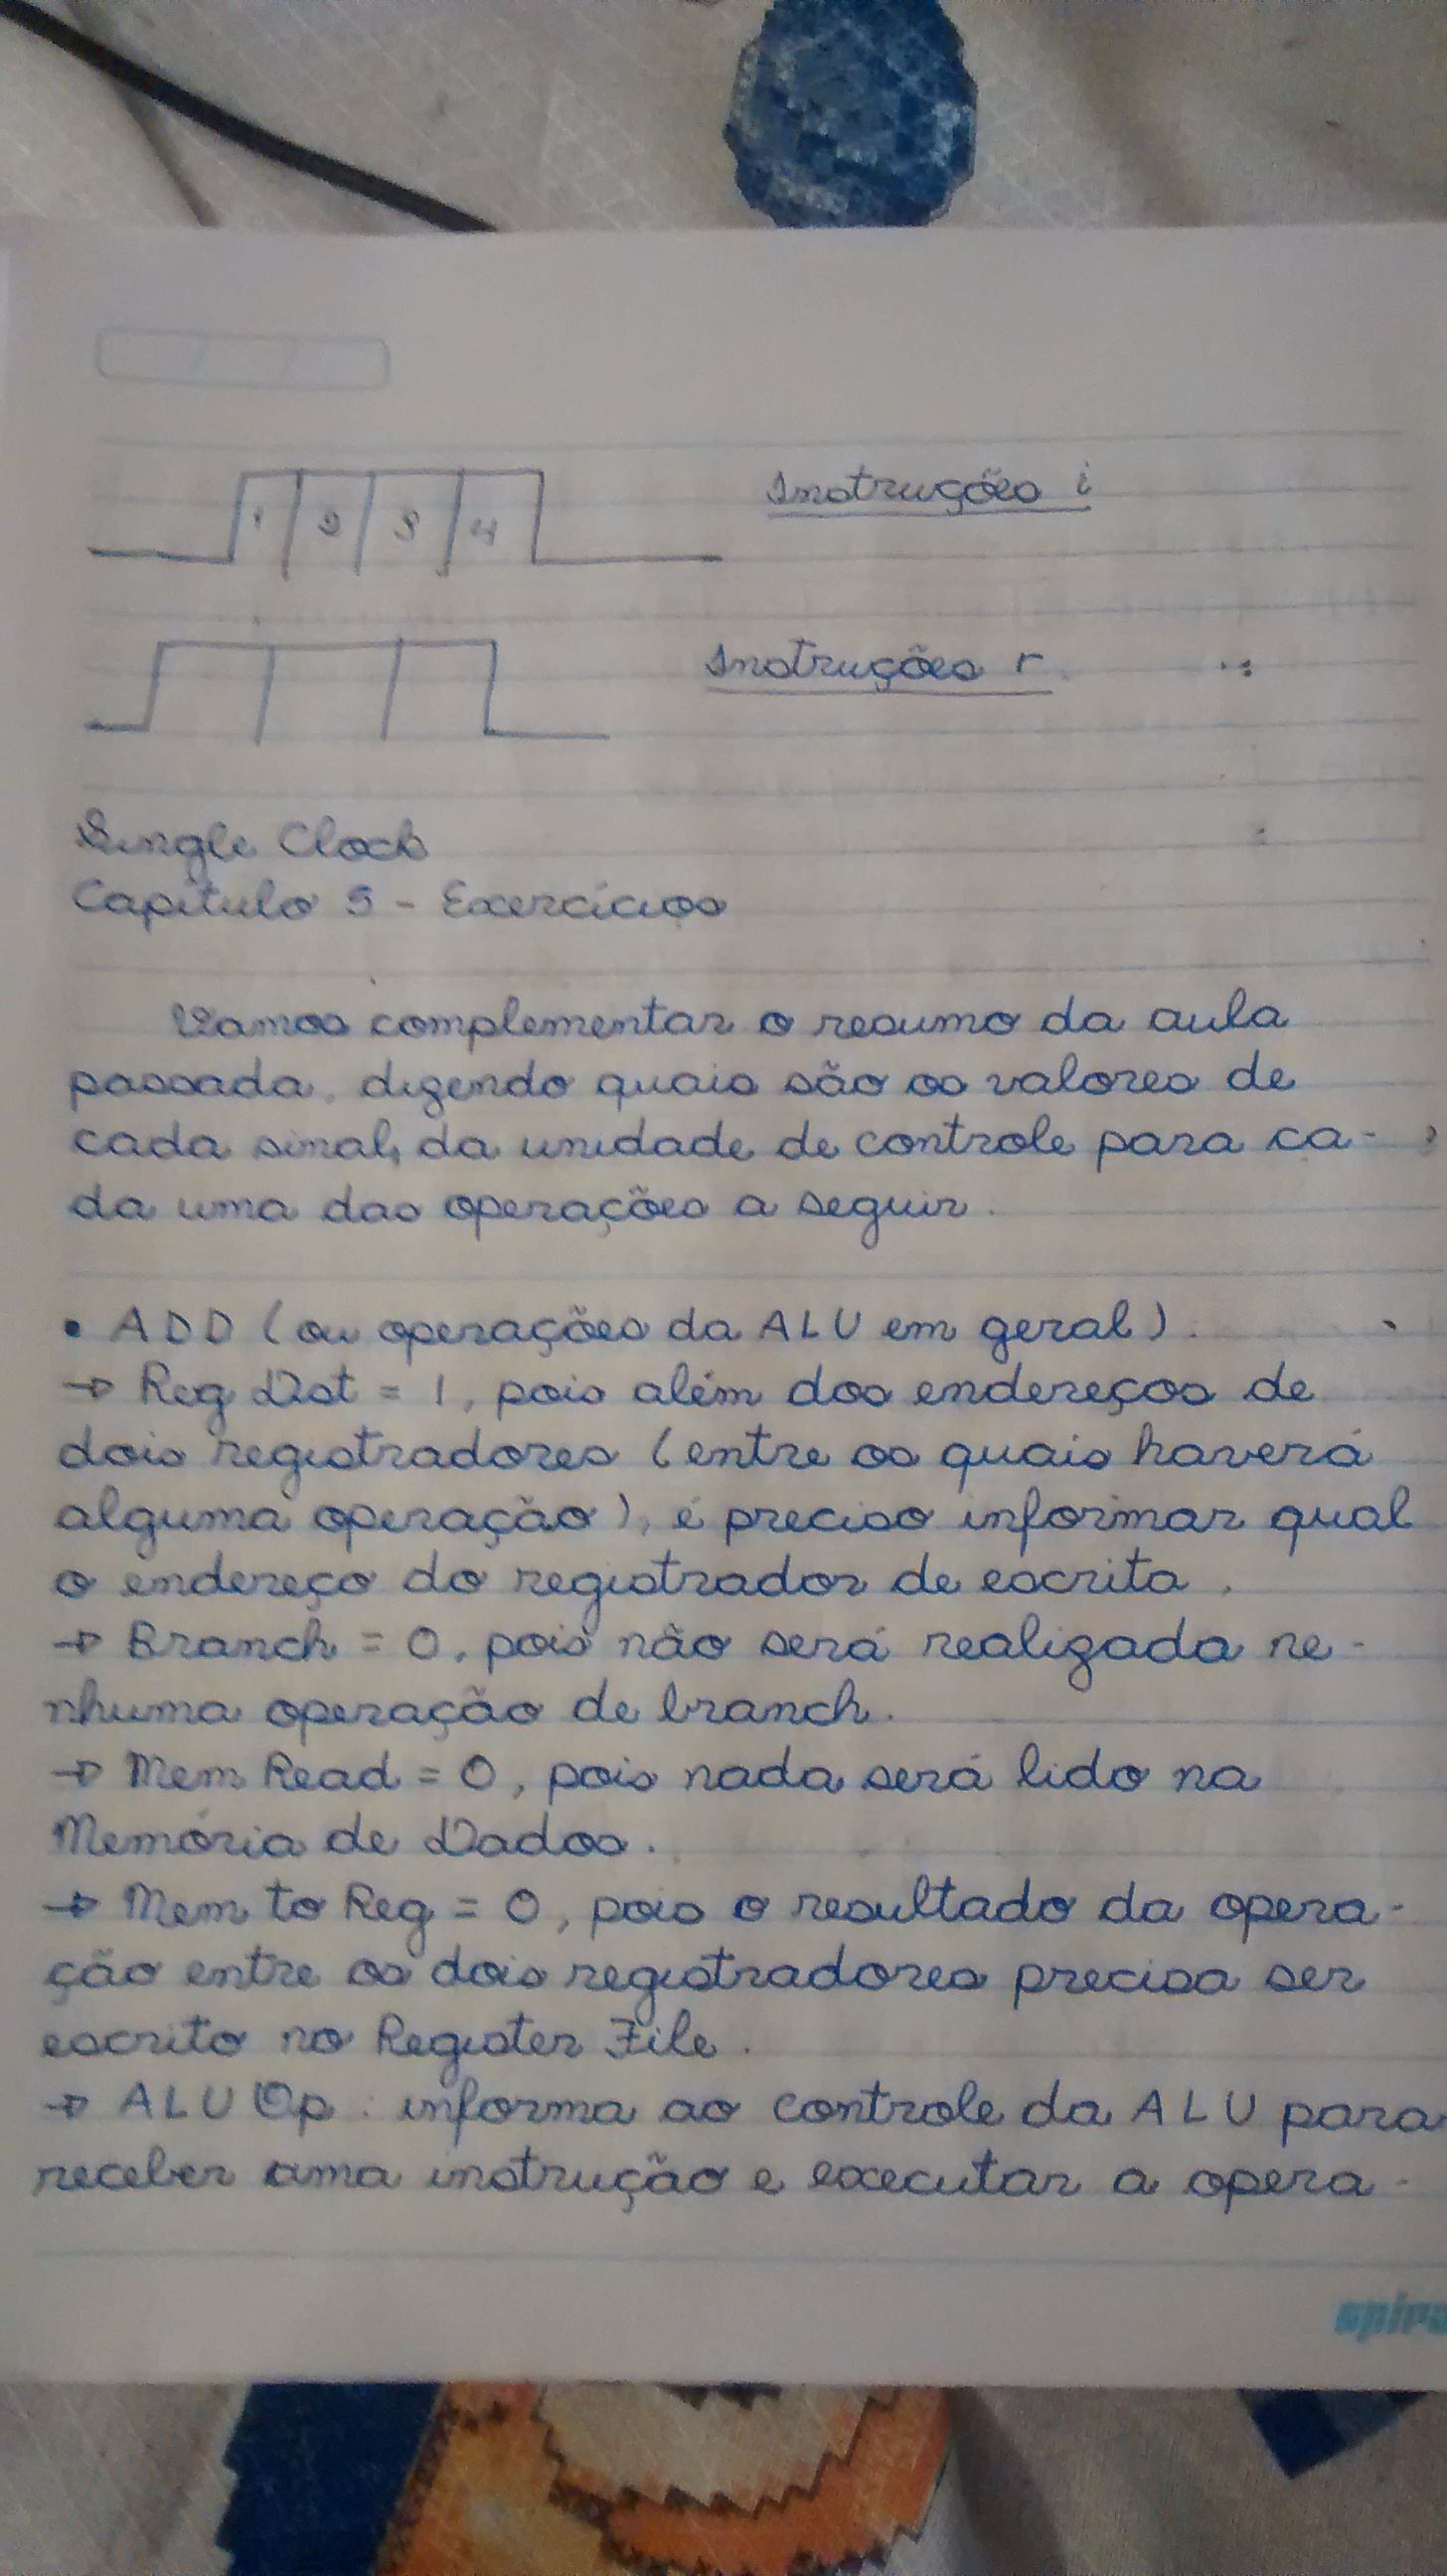 1 2 3 4 Instruções i
Instruções r
Single Clock
Capítulo 5 - Exercícios
Vamos complementar o resumo da aula
passada, dizendo quais são os valores de
cada sinal da unidade de controle para ca-
da uma das operações a seguir.
• ADD (ou operações da ALU em geral).
→ Reg Dst = 1, pois além dos endereços de
dois registradores (entre os quais haverá
alguma operação), é preciso informar qual
o endereço do registrador de escrita.
→ Branch = 0, pois não será realizada ne-
nhuma operação de branch.
→ Mem Read = 0, pois nada será lido na
Memória de Dados.
→ Mem to Reg = 0, pois o resultado da opera-
ção entre os dois registradores precisa ser
escrito no Register File.
→ ALU Op: informa ao controle da ALU para
receber uma instrução e executar a opera-
spira